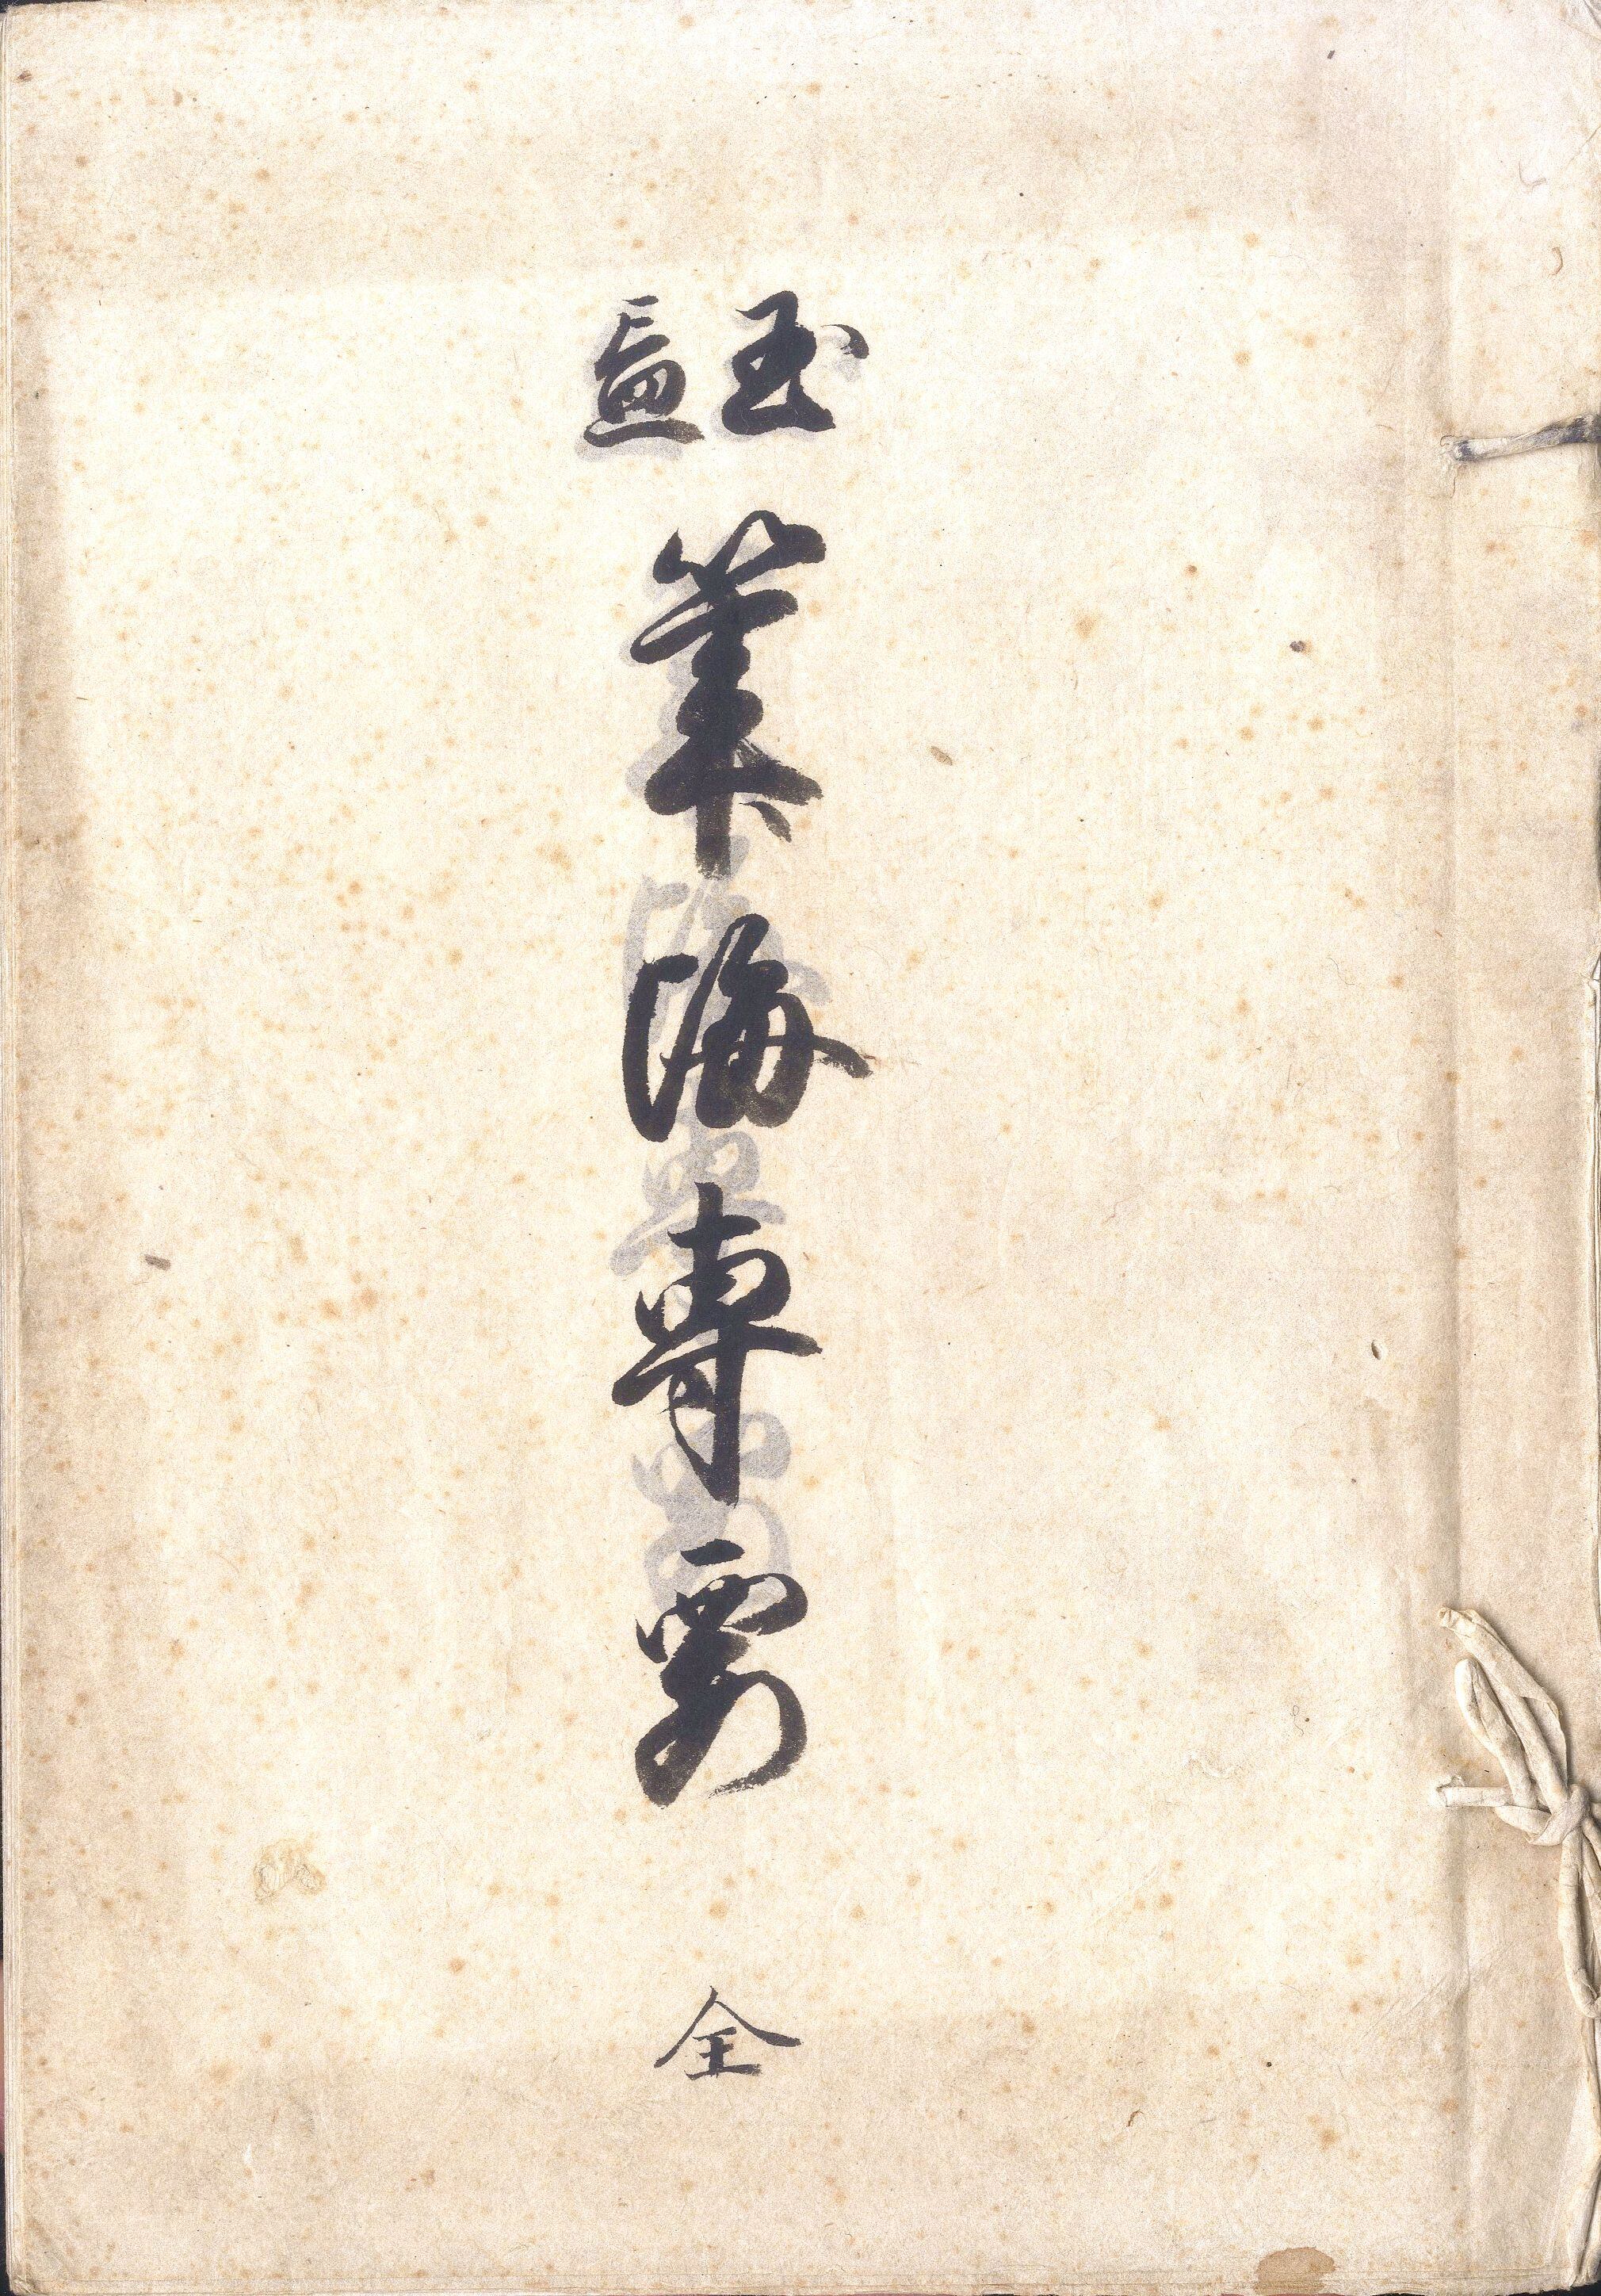 玉
置
筆海専要
全